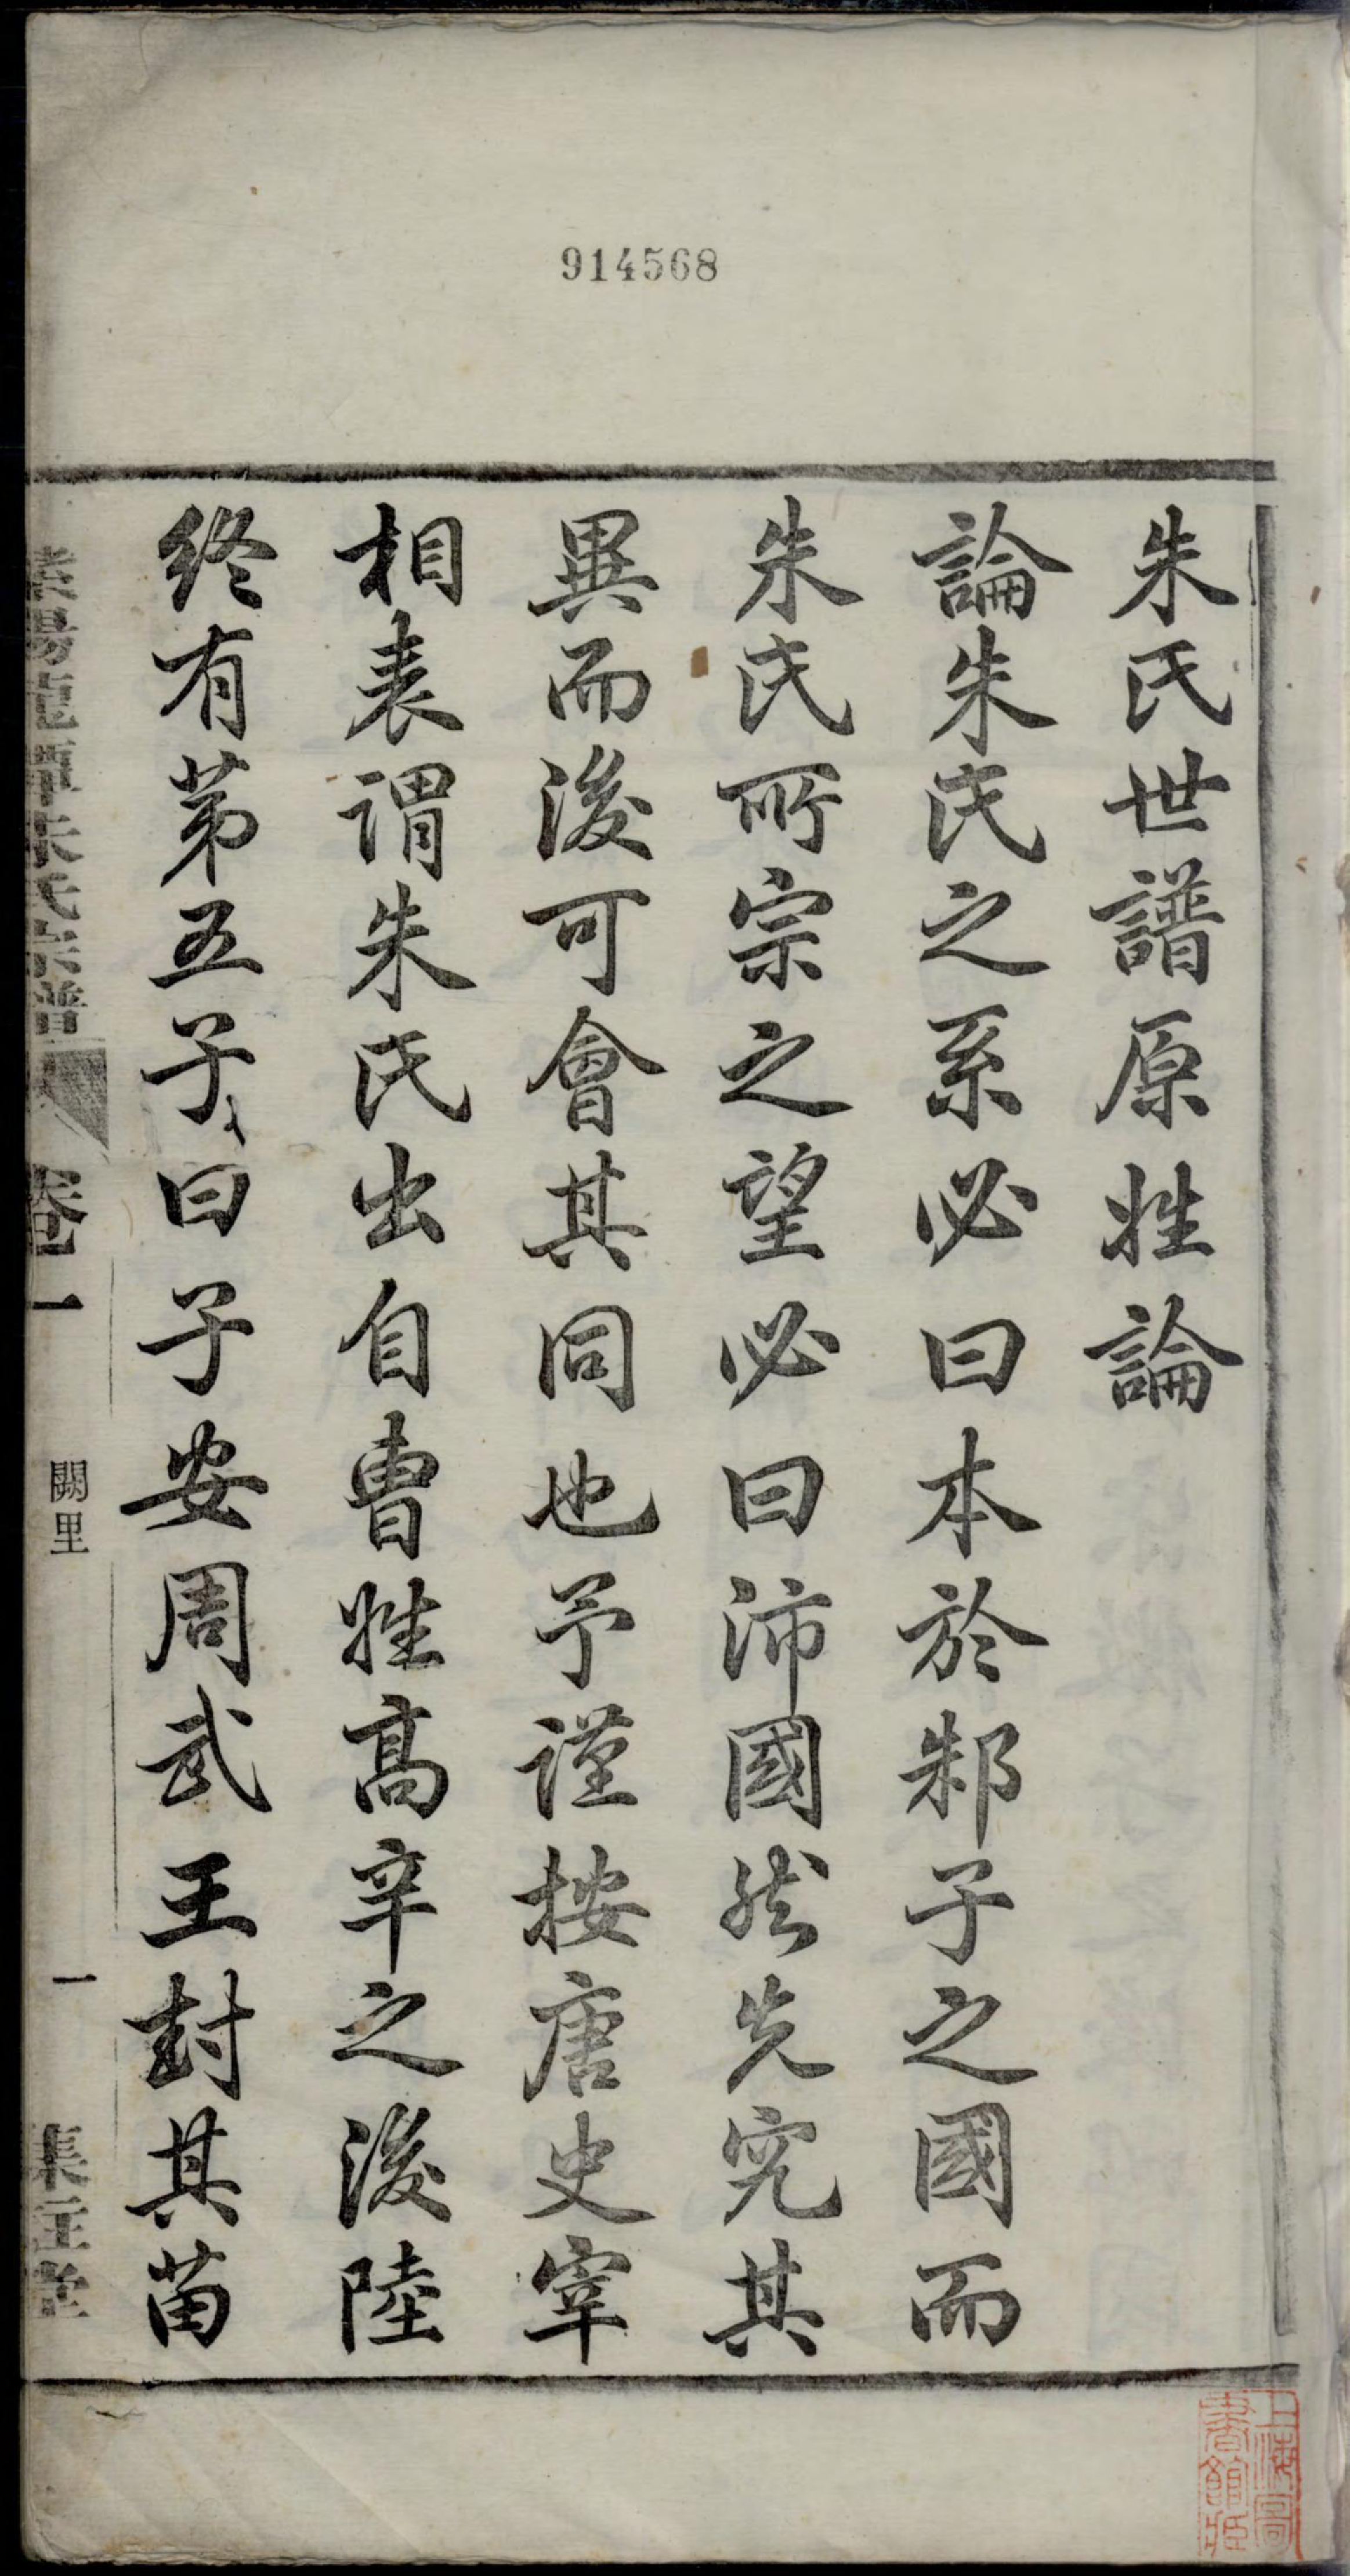 914568
朱氏世譜原姓論
論朱氏之系必曰本於邾子之國而
朱氏所宗之望必曰沛國然先究其
異而後可會其同也予謹按唐史宰
相表謂朱氏出自曹姓高辛之後陸
終有第五子曰子安周武王封其苗
朱氏宗譜
卷一
闕里
一
上海圖
書館藏